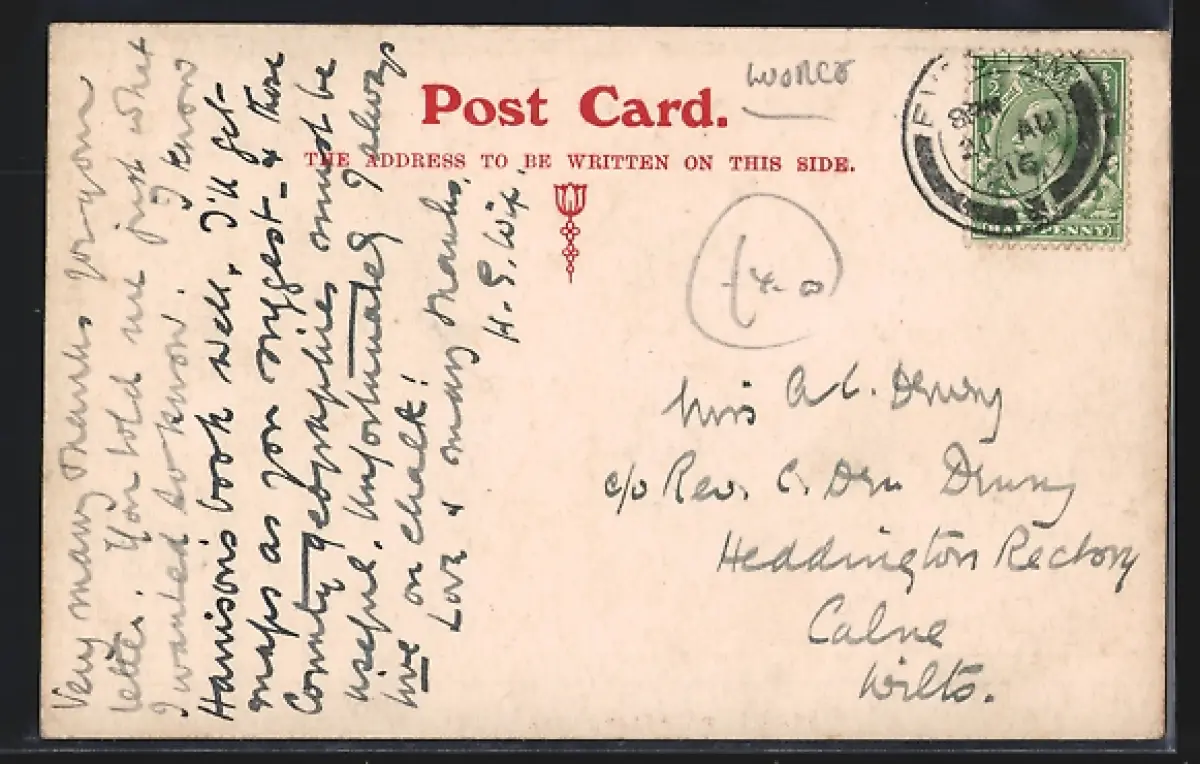 Post Card.
THE ADDRESS TO BE WRITTEN ON THIS SIDE.
WORCS
HALFPENNY
8 PM
AU
16
Very many thanks for your
letter. You told me just what
I wanted to know. I know
Harrison's book well. I'll get
maps as you suggest - & those
County geographies must be
useful. Unfortunately I always
live on chalk!
Love & many thanks,
H. E.
Miss A C. Drury
c/o Rev. C. Dru Drury
Heddington Rectory
Calne
Wilts.